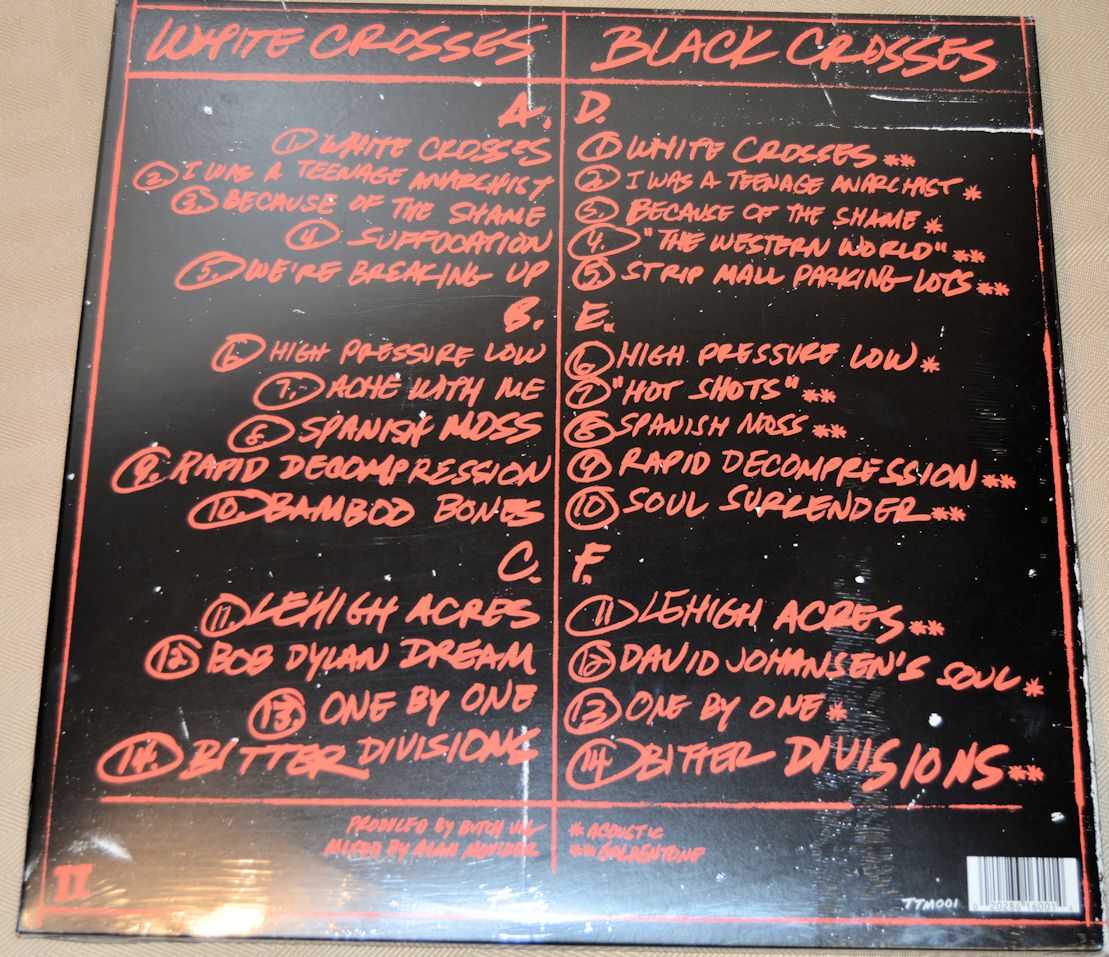 WHITE CROSSES
A.
1. WHITE CROSSES
2. I WAS A TEENAGE ANARCHIST
3. BECAUSE OF THE SHAME
4. SUFFOCATION
5. WE'RE BREAKING UP
B.
6. HIGH PRESSURE LOW
7. ACHE WITH ME
8. SPANISH MOSS
9. RAPID DECOMPRESSION
10. BAMBOO BONES
C.
11. LEHIGH ACRES
12. BOB DYLAN DREAM
13. ONE BY ONE
14. BITTER DIVISIONS
PRODUCED BY BUTCH VIG
MIXED BY ALAN MOULDER
BLACK CROSSES
D.
1. WHITE CROSSES **
2. I WAS A TEENAGE ANARCHIST *
3. BECAUSE OF THE SHAME *
4. "THE WESTERN WORLD" **
5. STRIP MALL PARKING LOTS **
E.
6 HIGH PRESSURE LOW *
7 "HOT SHOTS" **
8 SPANISH MOSS **
9 RAPID DECOMPRESSION **
10 SOUL SURRENDER **
F.
11 LEHIGH ACRES **
12 DAVID JOHANSEN'S SOUL *
13 ONE BY ONE *
14 BITTER DIVISIONS **
* ACOUSTIC
** GOLDENTONE
TTM001
0 20286 16001 4